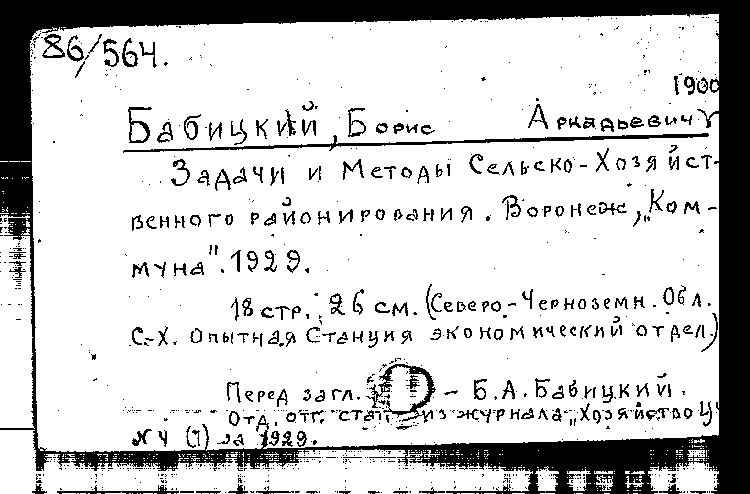 86/564.
1900
Бабицкий, Борис Аркадьевич
Задачи и методы Сельско-Хозяйст-
венного районирования. Воронеж, „Ком-
муна". 1929.
18 стр.; 26 см. (Северо-Черноземн. Обл.
С.-Х. Опытная Станция экономический отдел.)
Перед загл. – Б.А. Бабицкий.
Отд. отт. стат. из журнала „Хозяйство
№ 4 (7) за 1929.